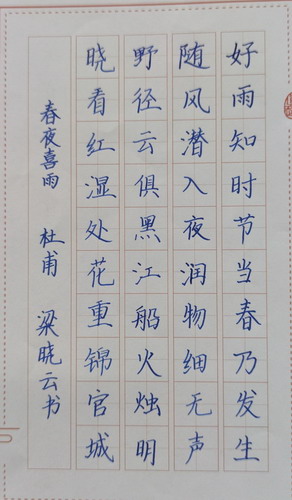 好雨知时节当春乃发生
随风潜入夜润物细无声
野径云俱黑江船火烛明
晓看红湿处花重锦官城
春夜喜雨 杜甫 梁晓云书